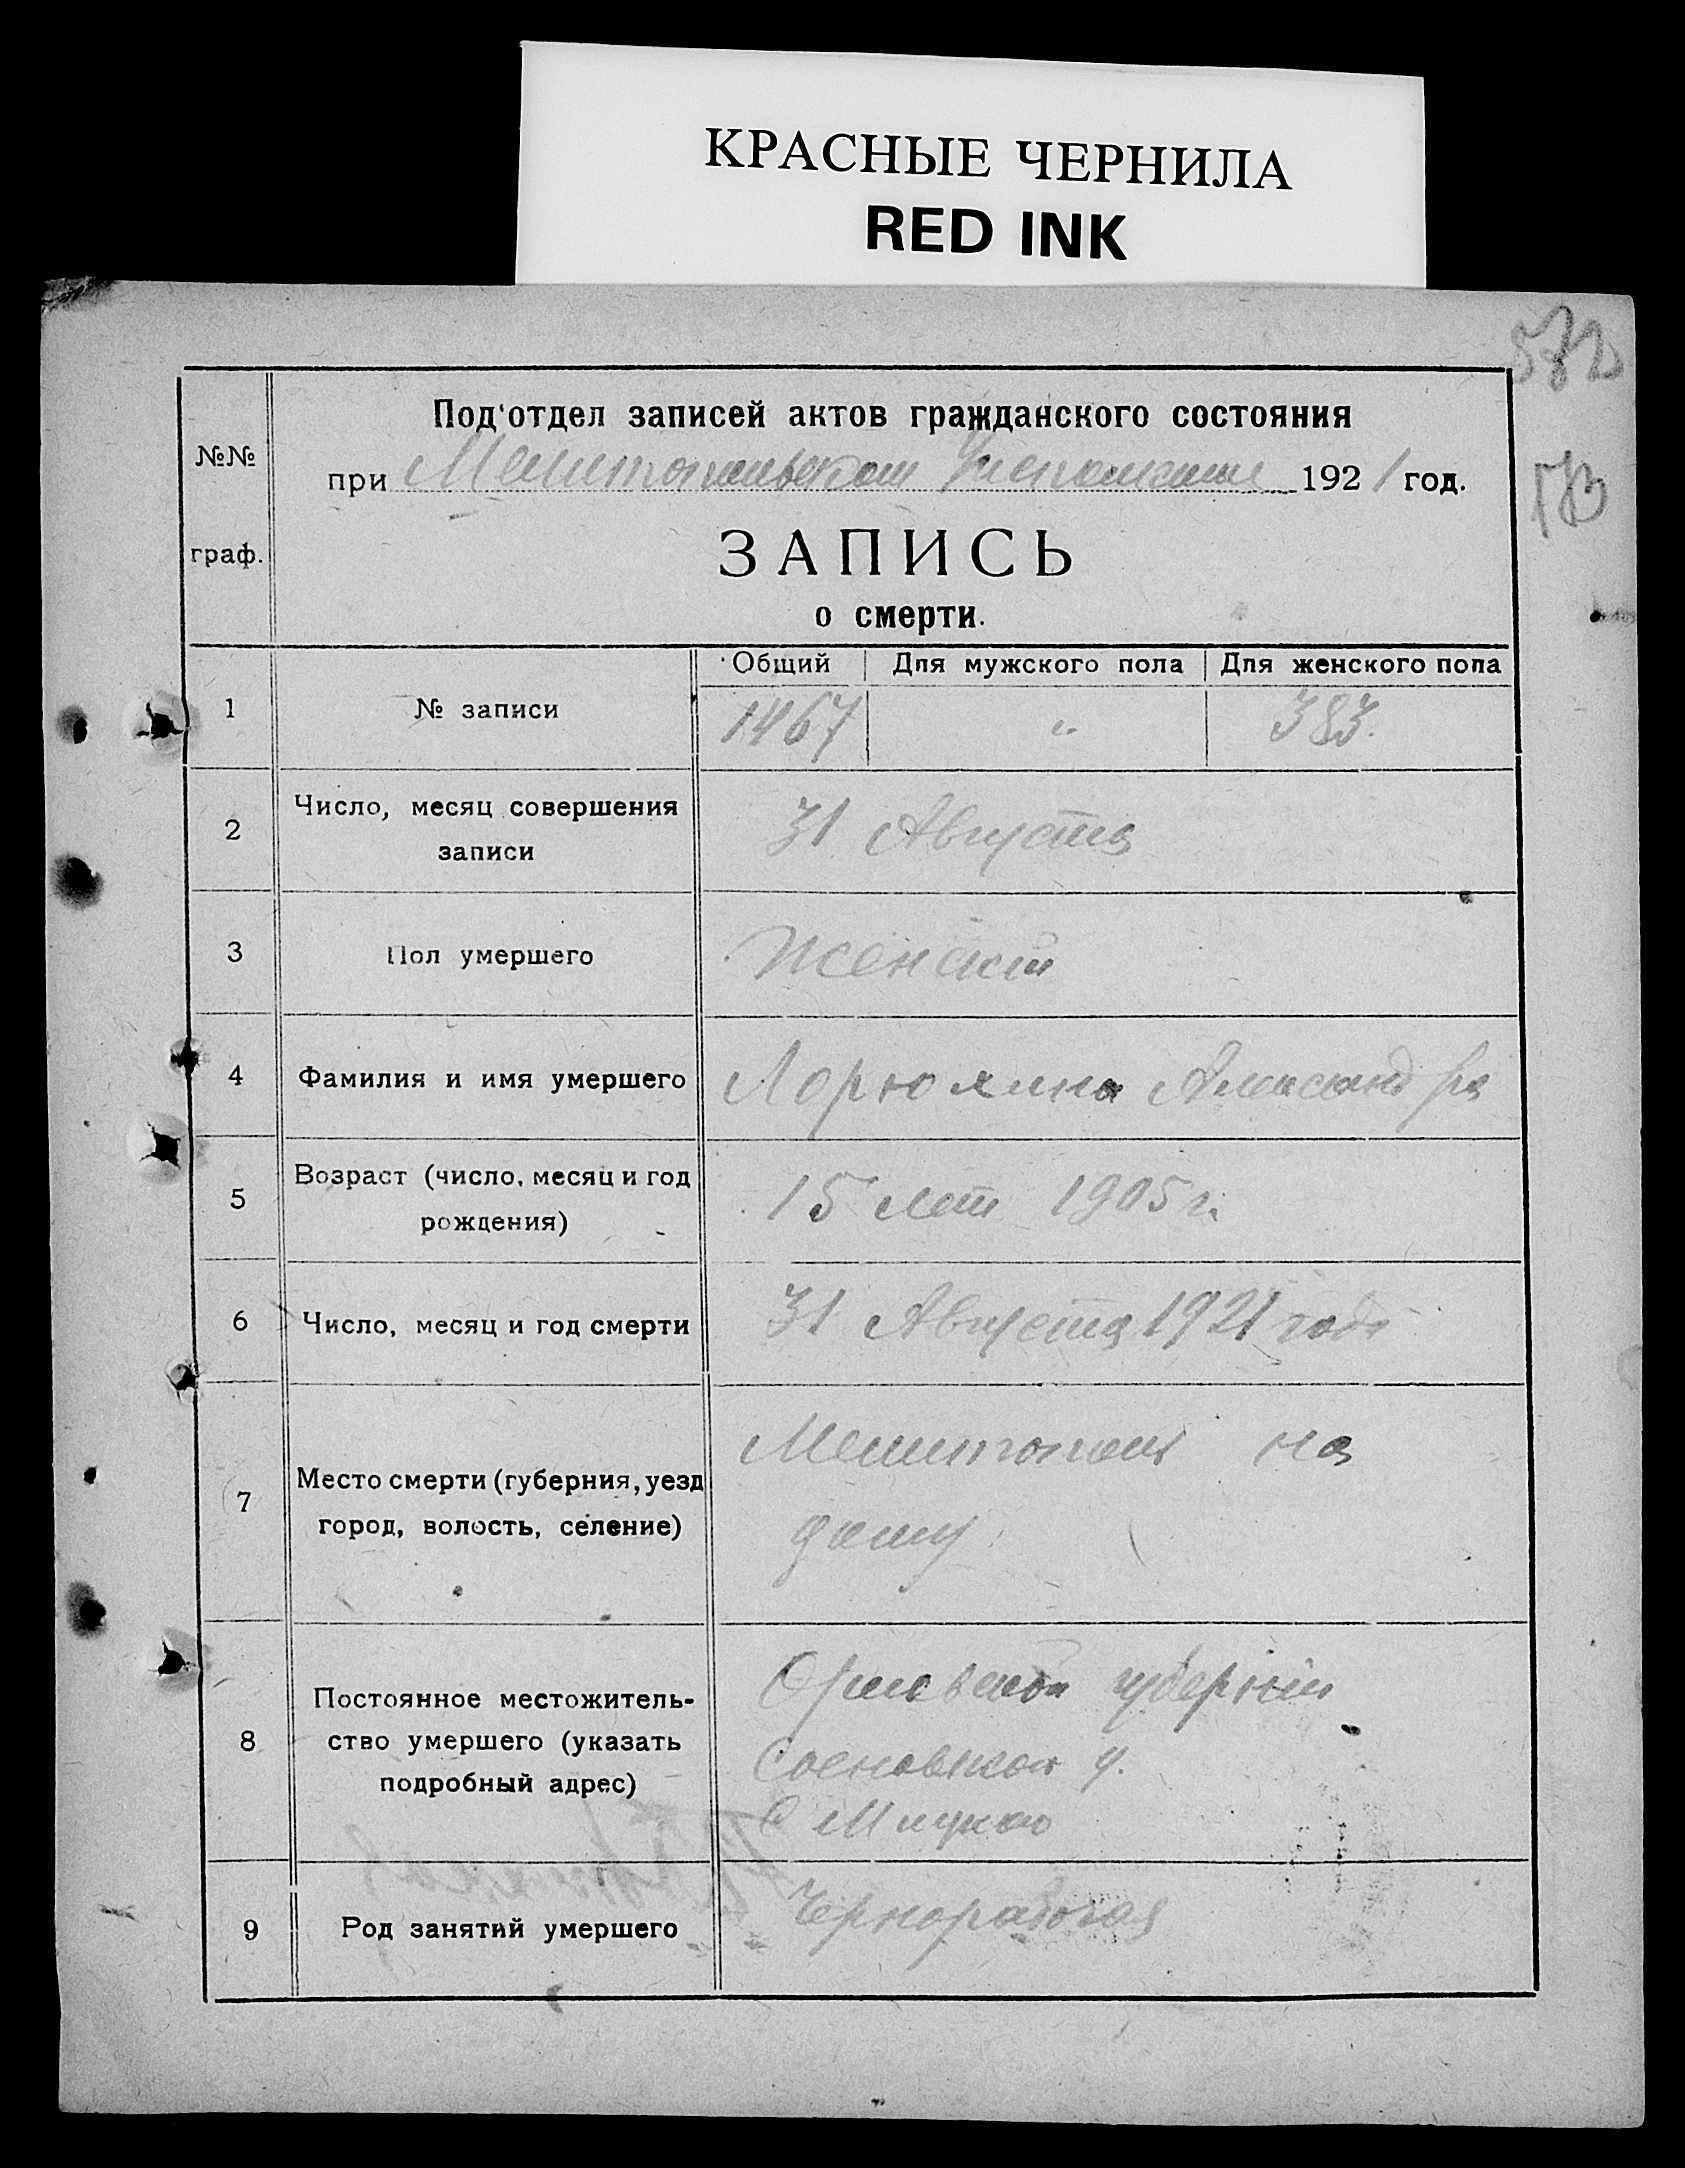 КРАСНЫЕ ЧЕРНИЛА
RED INK
572
573
№№
граф.
Под'отдел записей актов гражданского состояния
при Мелитопольском Уисполкоме 1921 год.
ЗАПИСЬ
о смерти.
Общий Для мужского пола Для женского пола
1 № записи 1467 " 383.
2 Число, месяц совершения
записи
31 Августа
3 Пол умершего
Женский
4 Фамилия и имя умершего
Александра
5 Возраст (число, месяц и год
рождения)
15 лет 1905 г.
6 Число, месяц и год смерти
31 Августа 1921 года
7 Место смерти (губерния, уезд
город, волость, селение)
Мелитополь на
дому
8 Постоянное местожитель-
ство умершего (указать
подробный адрес)
Орловской губернии
у.
С
9 Род занятий умершего
Чернорабочая